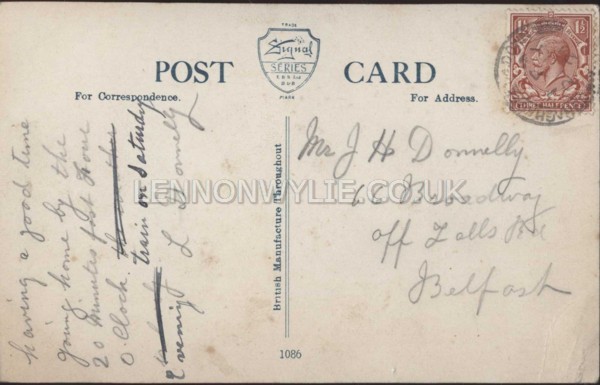 TRADE
Signal
SERIES
E.&S. LTD
DUB
MARK
POST CARD
For Correspondence.
For Address.
having a good time
going home by the
20 minutes past four
O Clock
train on Saturday
evenig L Donnelly
British Manufacture Throughout
Mr J H Donnelly
66 Broadway
off Falls Rd
Belfast
LENNONWYLIE.CO.UK
1086
1½ 1½